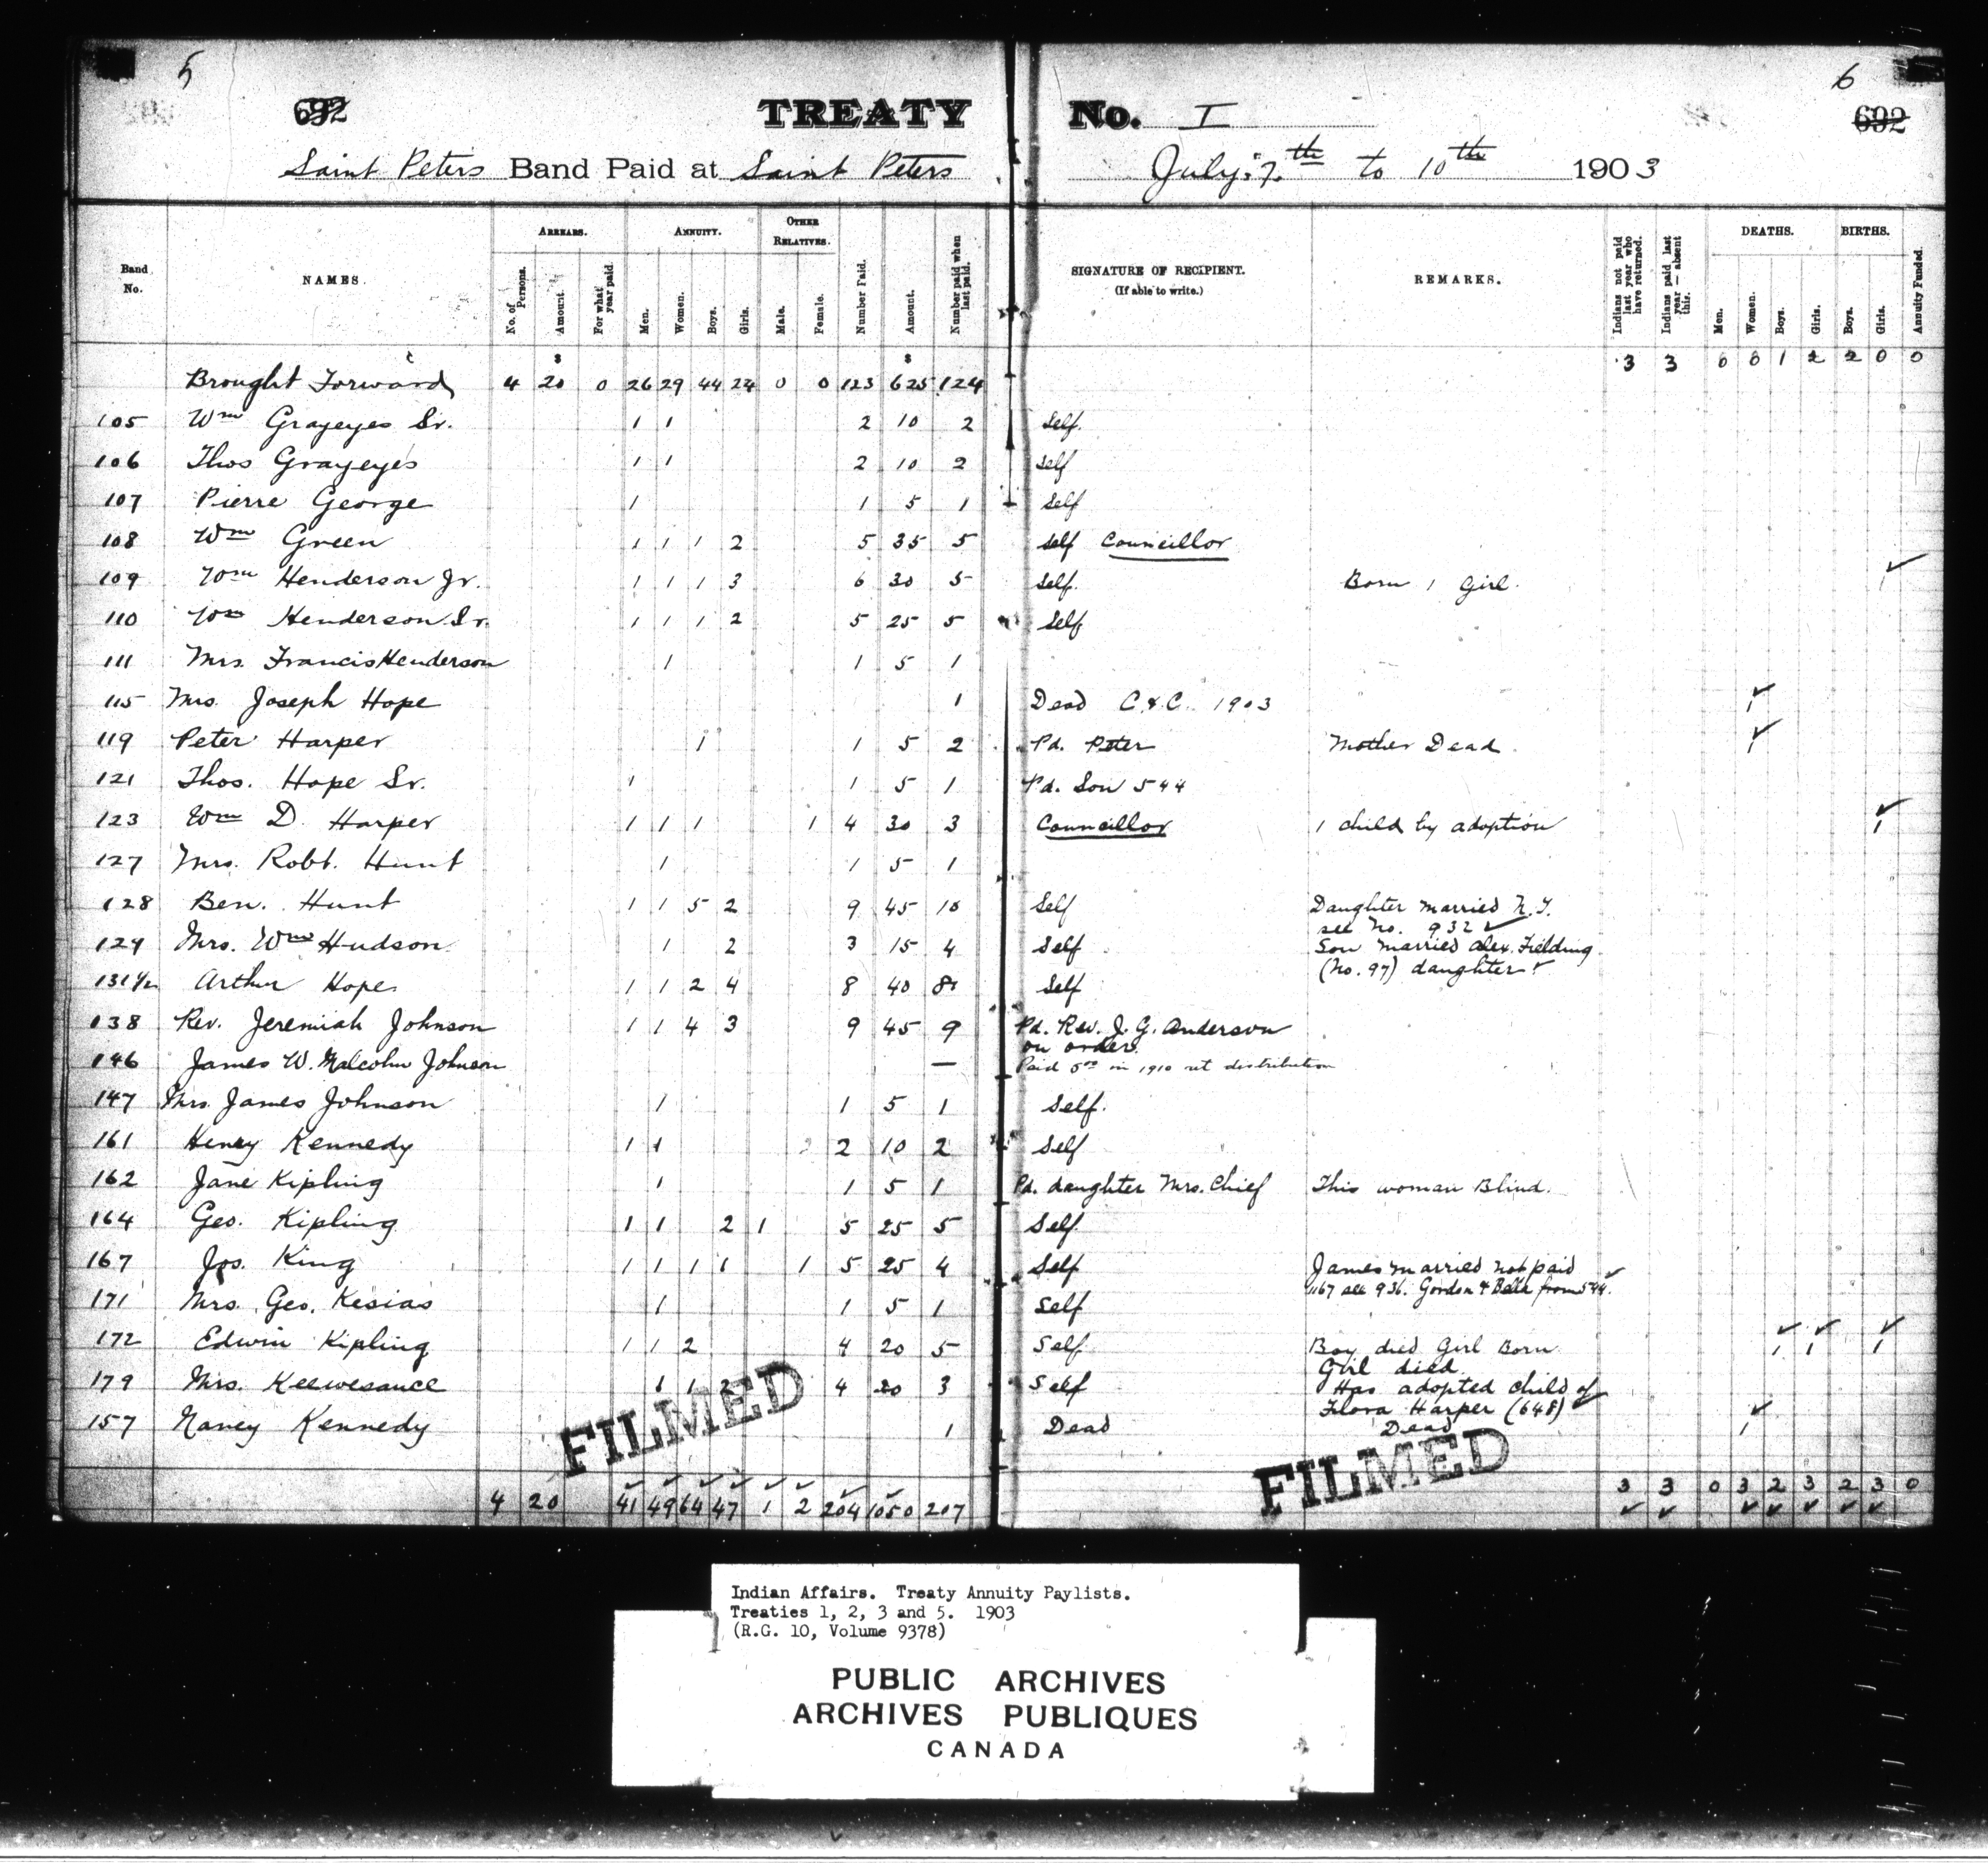 5
6
692
TREATY No. I
692
Saint Peters Band Paid at Saint Peters July 7th to 10th 1903
Band No.
NAMES.
ARREARS.
No. of Persons.
Amount.
For what year paid.
ANNUITY.
Men.
Women.
Boys.
Girls.
OTHER RELATIVES.
Male.
Female.
Number Paid.
Amount.
Number paid when last paid.
SIGNATURE OF RECIPIENT.
(If able to write.)
REMARKS.
Indians not paid last year who have returned.
Indians paid last year — absent this.
DEATHS.
Men.
Women.
Boys.
Girls.
BIRTHS.
Boys.
Girls.
Annuity Funded.
$ $
Brought Forward 4 20 0 26 29 44 24 0 0 123 625 124 3 3 0 0 1 2 2 0 0
105 Wm Grayeyes Sr. 1 1 2 10 2 Self.
106 Thos Grayeyes 1 1 2 10 2 Self
107 Pierre George 1 1 5 1 Self
108 Wm Green 1 1 1 2 5 35 5 Self Councillor
109 Wm Henderson Jr. 1 1 1 3 6 30 5 Self. Born 1 Girl. ✓ 1
110 Wm Henderson Sr. 1 1 1 2 5 25 5 Self
111 Mrs. Francis Henderson 1 1 5 1
115 Mrs. Joseph Hope 1 Dead C.&C. 1903 ✓ 1
119 Peter Harper 1 1 5 2 Pd. Peter Mother Dead. ✓ 1
121 Thos. Hope Sr. 1 1 5 1 Pd. Son 544
123 Wm D. Harper 1 1 1 1 4 30 3 Councillor 1 child by adoption ✓ 1
127 Mrs. Robt. Hunt 1 1 5 1
128 Ben. Hunt 1 1 5 2 9 45 10 Self Daughter married N.T.
see No. 932 ✓
129 Mrs. Wm Hudson 1 2 3 15 4 Self Son married Alex. Fielding
(No. 97) daughter ✓
131½ Arthur Hope 1 1 2 4 8 40 8 Self
138 Rev. Jeremiah Johnson 1 1 4 3 9 45 9 Pd. Rev. J. G. Anderson
on order.
146 James W. Malcolm Johnson — Paid 5.00 in 1910 at distribution
147 Mrs. James Johnson 1 1 5 1 Self.
161 Henry Kennedy 1 1 2 10 2 Self
162 Jane Kipling 1 1 5 1 Pd. daughter Mrs. Chief This woman Blind.
164 Geo. Kipling 1 1 2 1 5 25 5 Self.
167 Jos. King 1 1 1 1 1 5 25 4 Self James married not paid
1167 see 936. Gordon & Bella from 544. ✓
171 Mrs. Geo. Kesias 1 1 5 1 Self
172 Edwin Kipling 1 1 2 4 20 5 Self Boy died Girl Born ✓ ✓ ✓ 1 1 1
Girl died
179 Mrs. Keewesance 1 1 2 4 20 3 Self Has adopted child of
Flora Harper (648) ✓
157 Nancy Kennedy 1 Dead Dead ✓ 1
FILMED
FILMED
4 20 41 49 64 47 1 2 204 1050 207 3 3 0 3 2 3 2 3 0
Indian Affairs. Treaty Annuity Paylists.
Treaties 1, 2, 3 and 5. 1903
(R.G. 10, Volume 9378)
PUBLIC ARCHIVES
ARCHIVES PUBLIQUES
CANADA